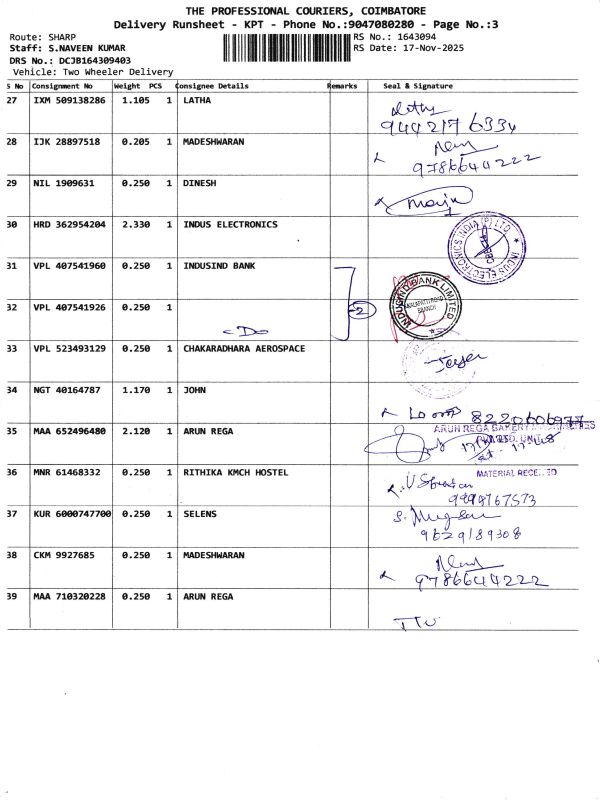 THE PROFESSIONAL COURIERS, COIMBATORE
Delivery Runsheet - KPT - Phone No.:9047080280 - Page No.:3
Route: SHARP
RS No.: 1643094
Staff: S.NAVEEN KUMAR
RS Date: 17-Nov-2025
DRS No.: DCJB164309403
Vehicle: Two Wheeler Delivery
S No Consignment No Weight PCS Consignee Details Remarks Seal & Signature
27 IXM 509138286 1.105 1 LATHA
Latha
944217 6334
28 IJK 28897518 0.205 1 MADESHWARAN
9786644222
29 NIL 1909631 0.250 1 DINESH
30 HRD 362954204 2.330 1 INDUS ELECTRONICS
INDUS ELECTRONICS INDIA (P) LTD
31 VPL 407541960 0.250 1 INDUSIND BANK
2
INDUSIND BANK LIMITED
BRANCH
32 VPL 407541926 0.250 1
Do
33 VPL 523493129 0.250 1 CHAKARADHARA AEROSPACE
34 NGT 40164787 1.170 1 JOHN
8220606977
35 MAA 652496480 2.120 1 ARUN REGA
ARUN REGA BAKERY
36 MNR 61468332 0.250 1 RITHIKA KMCH HOSTEL
MATERIAL RECEIVED
37 KUR 6000747700 0.250 1 SELENS
9629189308
38 CKM 9927685 0.250 1 MADESHWARAN
9786644222
39 MAA 710320228 0.250 1 ARUN REGA